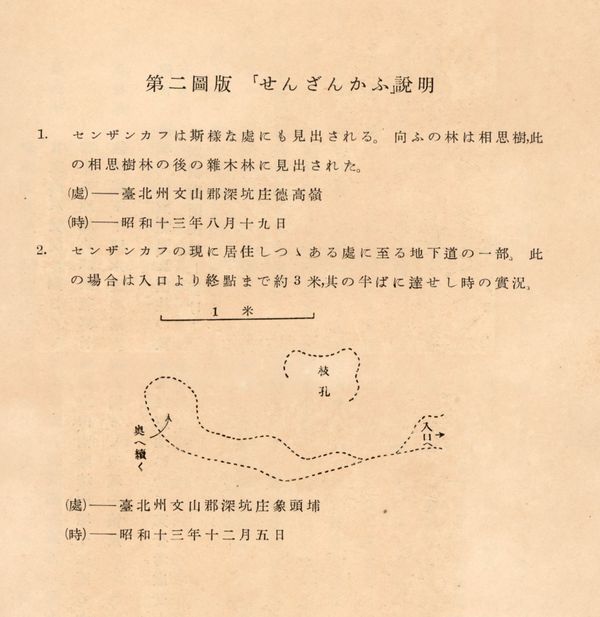 第二圖版 「せんざんかふ」說明
1. センザンカフは斯樣な處にも見出される。 向ふの林は相思樹,此
の相思樹林の後の雜木林に見出された。
(處)——臺北州文山郡深坑庄德高嶺
(時)——昭和十三年八月十九日
2. センザンカフの現に居住しつゝある處に至る地下道の一部。 此
の場合は入口より終點まで約3米,其の半ばに達せし時の實況。
1 米
枝孔
入口へ
奧へ續く
(處)——臺北州文山郡深坑庄象頭埔
(時)——昭和十三年十二月五日